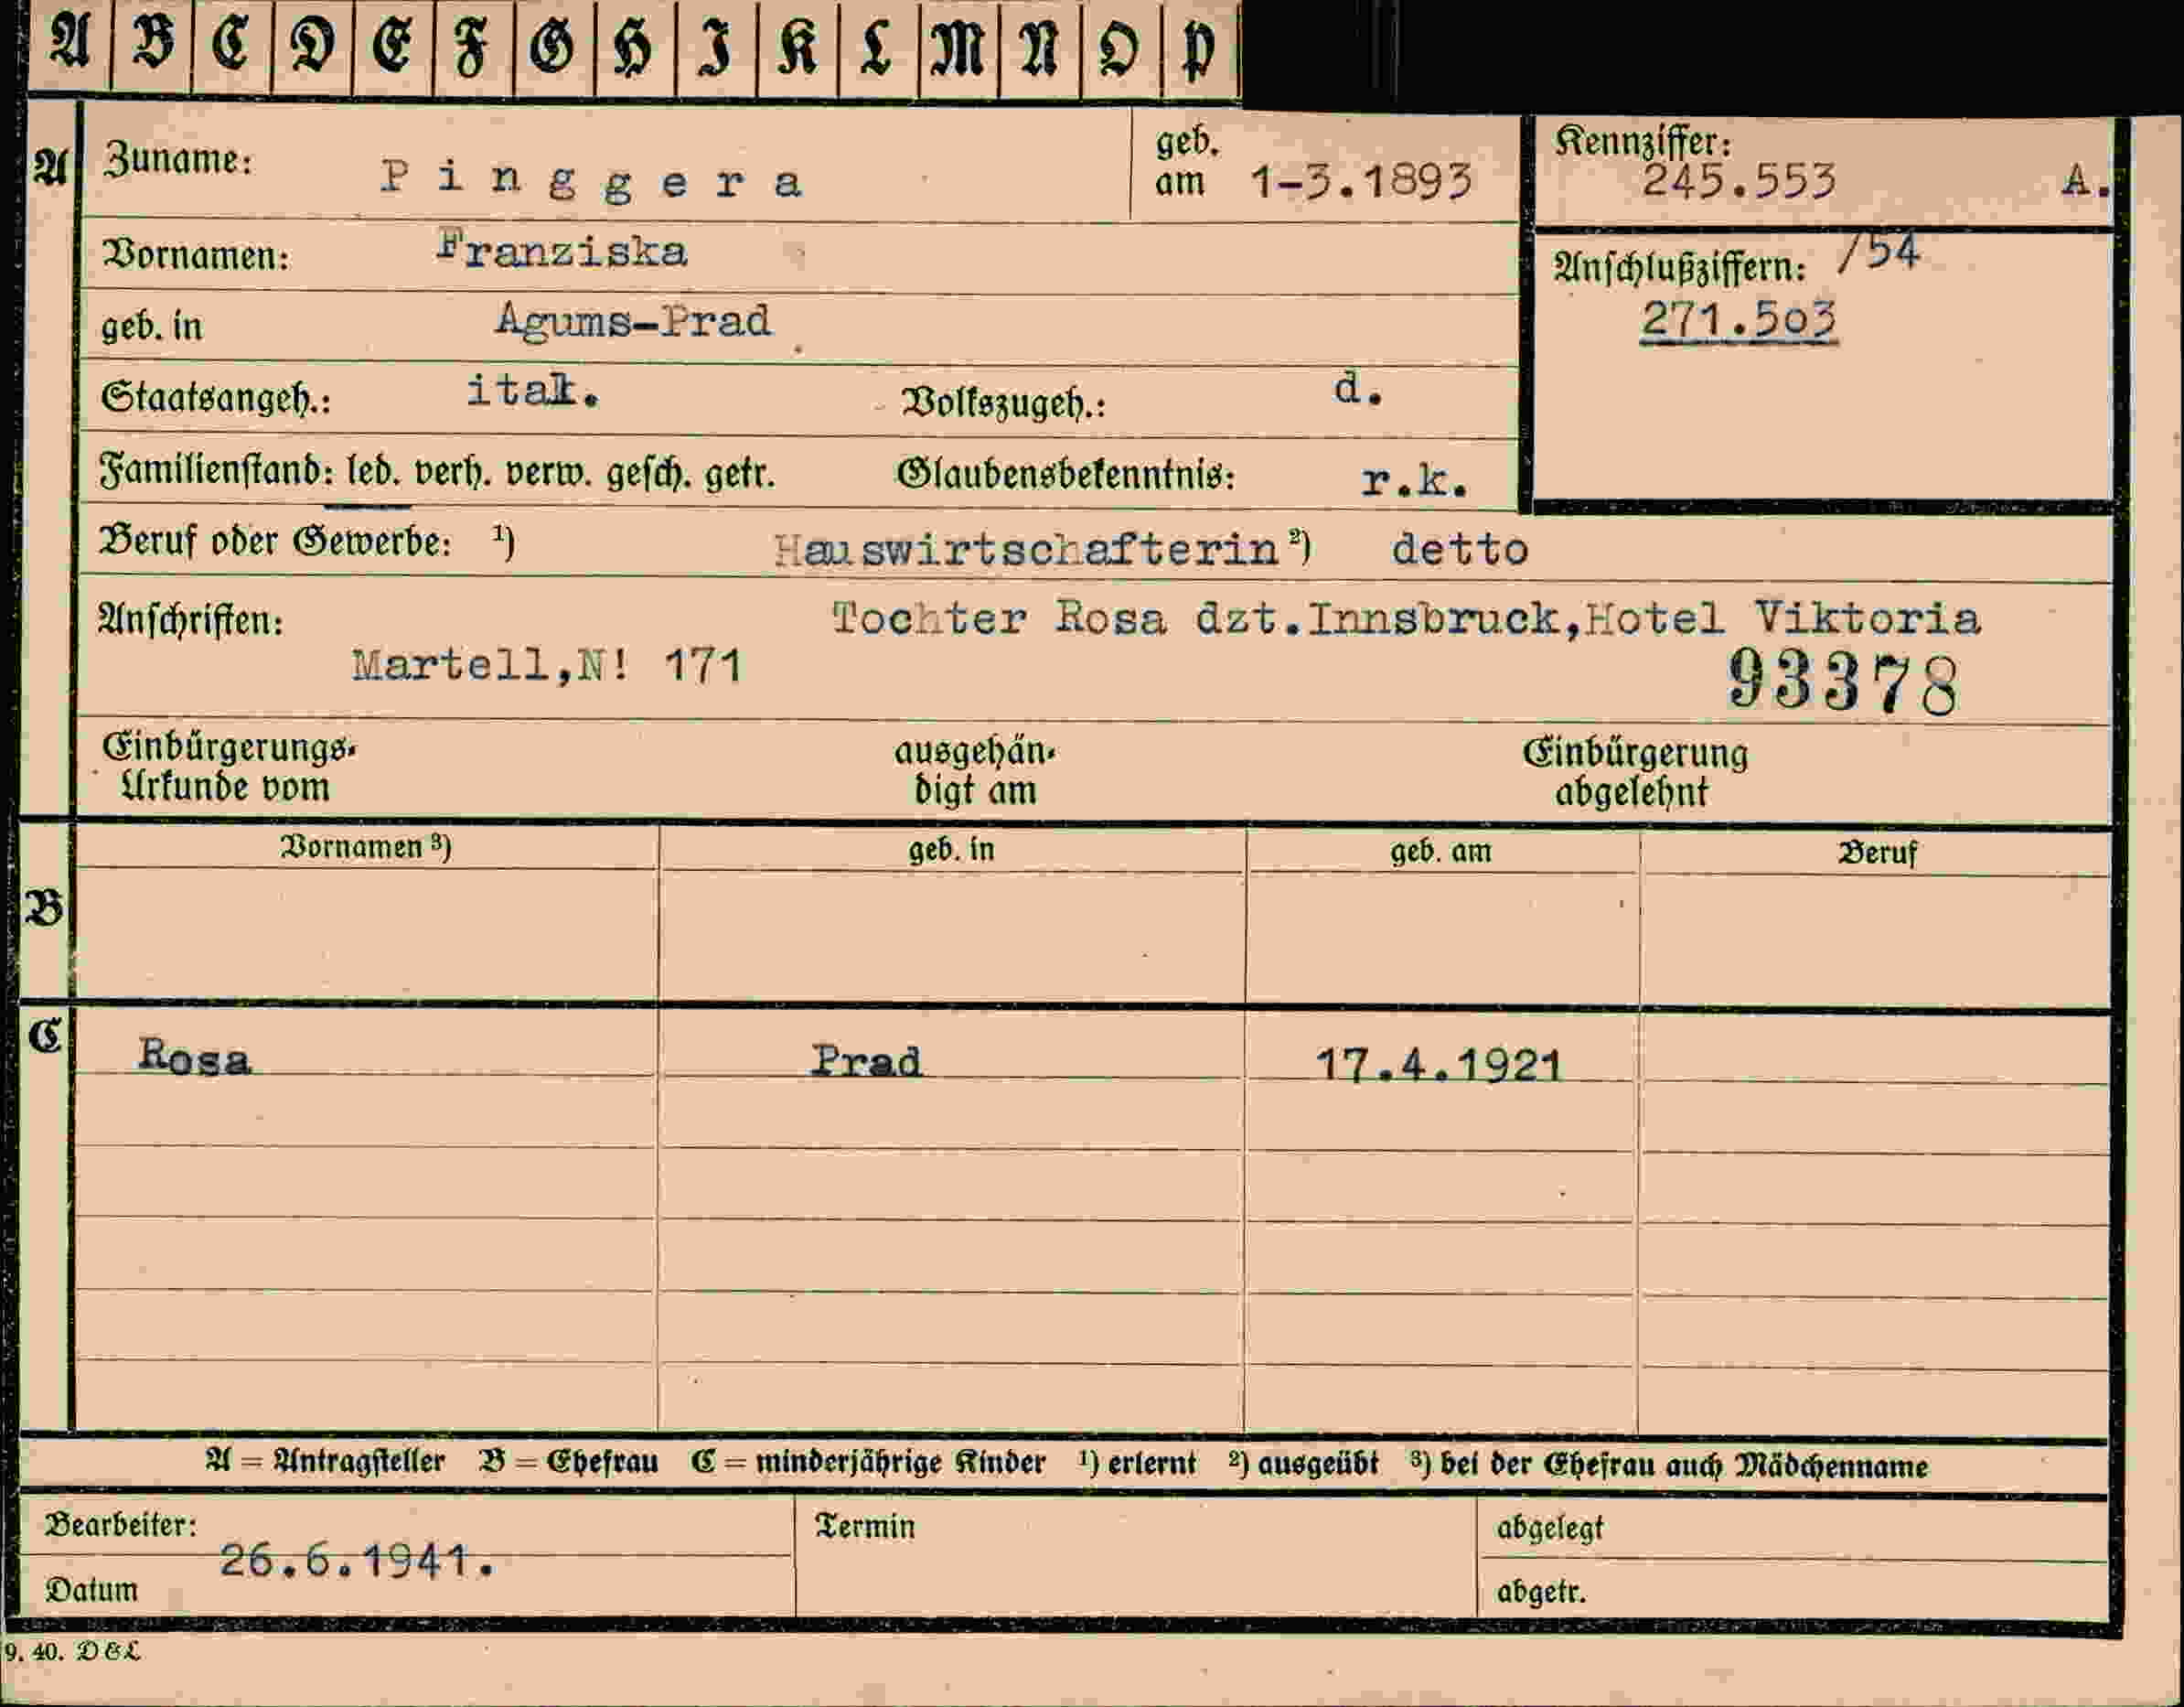 A B C D E F G H I K L M N O P
A Zuname: Pinggera geb. am 1-3.1893 Kennziffer: 245.553 A.
Vornamen: Franziska Anschlußziffern: /54
geb. in Agums-Prad 271.5o3
Staatsangeh.: ital. Volkszugeh.: d.
Familienstand: led. verh. verw. gesch. getr. Glaubensbekenntnis: r.k.
Beruf oder Gewerbe: 1) Hauswirtschafterin 2) detto
Anschriften: Tochter Rosa dzt.Innsbruck,Hotel Viktoria
Martell,N! 171 93378
Einbürgerungs- ausgehän- Einbürgerung
Urkunde vom digt am abgelehnt
Vornamen 3) geb. in geb. am Beruf
B
C Rosa Prad 17.4.1921
A = Antragsteller B = Ehefrau C = minderjährige Kinder 1) erlernt 2) ausgeübt 3) bei der Ehefrau auch Mädchenname
Bearbeiter: Termin abgelegt
26.6.1941.
Datum abgetr.
9. 40. D&L